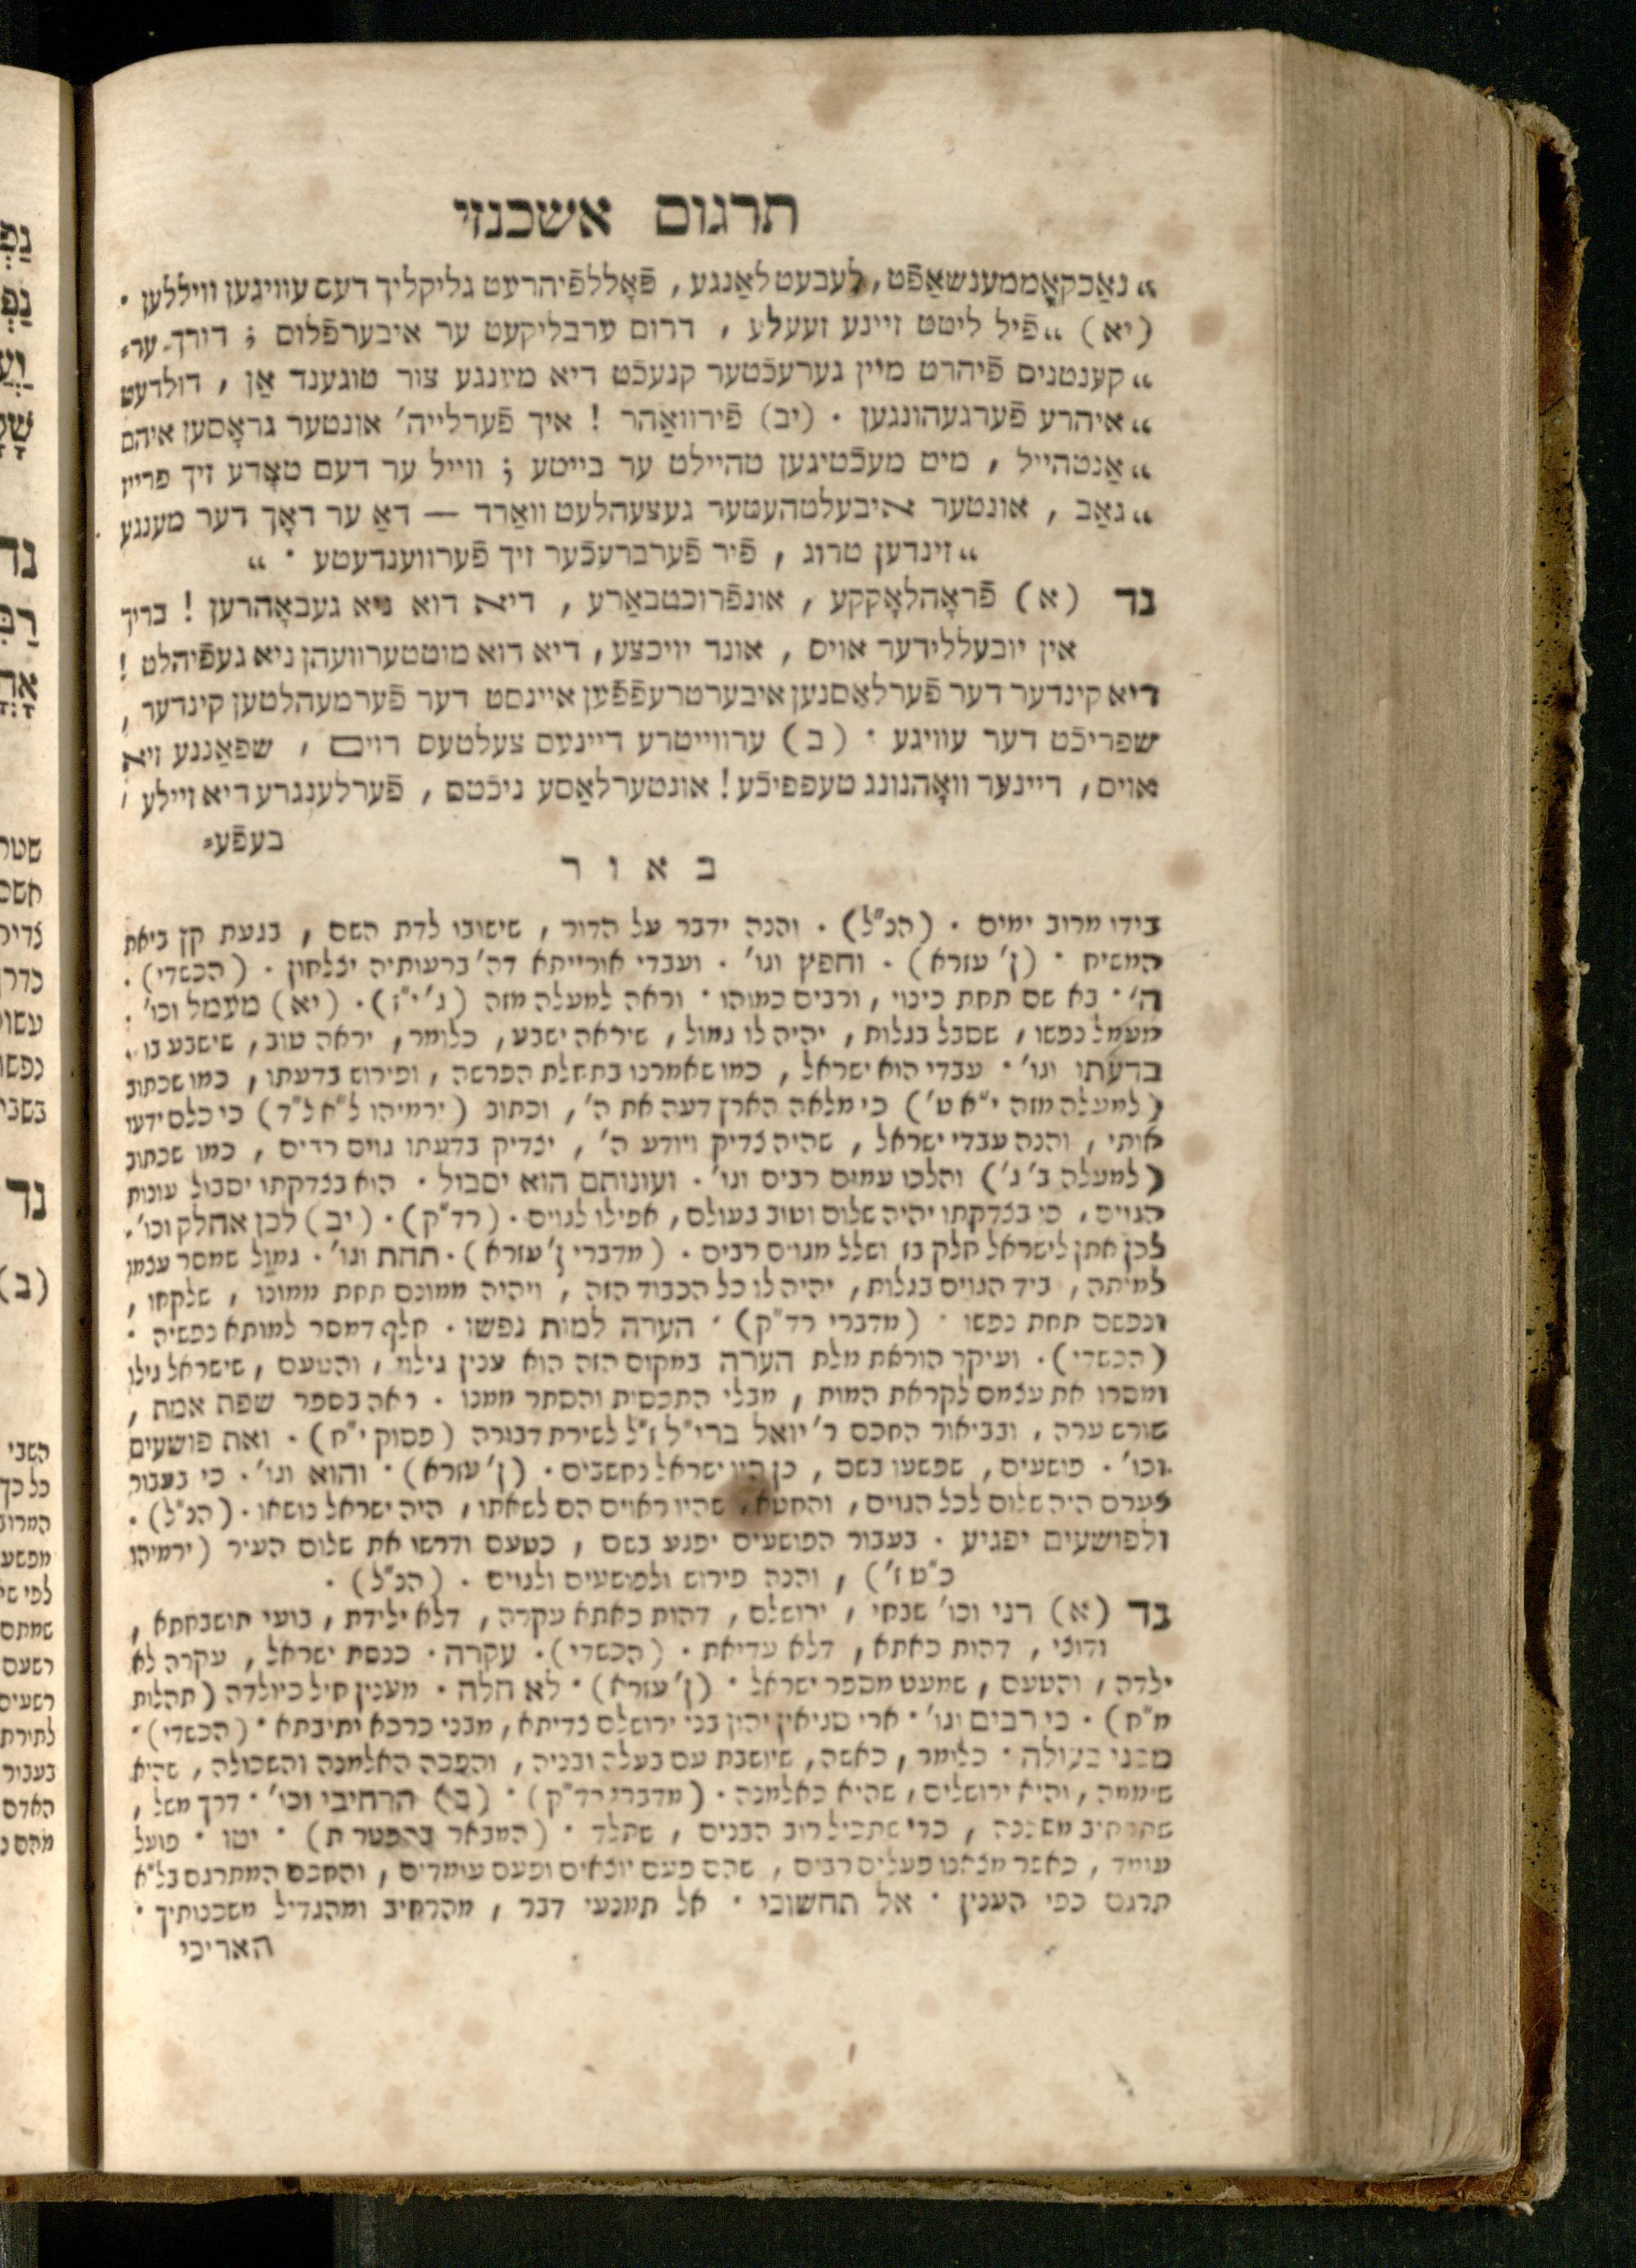 תרגום אשכנזי
„נאַכקאָממענשאַפֿט, לעבעט לאַנגע, פֿאָללפֿיהרעט גליקליך דעס עוויגען וויללען ·
(יא) „פֿיל ליטט זיינע זעעלע, דרום ערבליקעט ער איבערפֿלוס; דורך ער־
„קענטניס פֿיהרט מיין גערעכֿטער קנעכֿט דיא מענגע צור טוגענד אַן, דולדעט
„איהרע פֿערגעהונגען · (יב) פֿירוואַהר! איך פֿערלייה' אונטער גראָסען איהם
„אַנטהייל, מיט מעכֿטיגען טהיילט ער בייטע; ווייל ער דעם טאָדע זיך פרייז
„גאַב, אונטער איבעלטהעטער געצעהלעט וואַרד — דאַ ער דאָך דער מענגע
„זינדען טרוג, פֿיר פֿערברעכֿער זיך פֿערווענדעטע · “
נד (א) פֿראָהלאָקקע, אונפֿרוכטבאַרע, דיא דוא ניא געבאָהרען! בריך
אין יובעללידער אויס, אונד יויכצע, דיא דוא מוטטערוועהן ניא געפֿיהלט!
דיא קינדער דער פֿערלאַסנען איבערטרעפֿפֿען איינסט דער פֿערמעהלטען קינדער,
שפריכֿט דער עוויגע · (ב) ערווייטרע דיינעס צעלטעס רוים, שפאַננע זיא
אויס, דיינער וואָהנונג טעפפיכֿע! אונטערלאַסע ניכֿטס, פֿערלענגרע דיא זיילע,
בעפֿע־
באור
בידו מרוב ימים · (הנ"ל) · והנה ידבר על הדור, שישובו לדת השם, בגעת קץ ביאת
המשיח · (ן' עזרא) · וחפץ וגו' · ועבדי אורייתא דה' ברעותיה יצלחון · (הכשדי) ·
ה' · בא שם תחת כינוי, ורבים כמוהו · וראה למעלה מזה (ג' י"ז) · (יא) מעמל וכו' ·
מעמל נפשו, שסבל בגלות, יהיה לו גמול, שיראה ישבע, כלומר, יראה טוב, שישבע בו ·
בדעתו וגו' · עבדי הוא ישראל, כמו שאמרנו בתחלת הפרשה, ופירוש בדעתו, כמו שכתוב
(למעלה מזה י"א ט') כי מלאה הארץ דעה את ה', וכתוב (ירמיהו ל"א ל"ד) כי כלם ידעו
אותי, והנה עבדי ישראל, שהיה צדיק ויודע ה', יצדיק בדעתו גוים רבים, כמו שכתוב
(למעלה ב' ג') והלכו עמים רבים וגו' · ועונותם הוא יסבול · הוא בצדקתו יסבול עונות
הגוים, כי בצדקתו יהיה שלום וטוב בעולם, אפילו לגוים · (רד"ק) · (יב) לכן אחלק וכו' ·
לכן אתן לישראל חלק בז ושלל מגוים רבים · (מדברי ן' עזרא) · תחת וגו' · גמול שמסר עצמו
למיתה, ביד הגוים בגלות, יהיה לו כל הכבוד הזה, ויהיה ממונם תחת ממונו, שלקחו,
ונפשם תחת נפשו · (מדברי רד"ק) · הערה למות נפשו · חלף דמסר למותא נפשיה ·
(הכשדי) · ועיקר הוראת מלת הערה במקום הזה הוא ענין גילוי, והטעם, שישראל גילו
ומסרו את עצמם לקראת המות, מבלי התכסית והסתר ממנו · ראה בספר שפת אמת,
שורש ערה, ובביאור החכם ר' יואל ברי"ל ז"ל לשירת דבורה (פסוק י"ח) · ואת פושעים
וכו' · פושעים, שפשעו בשם, כן היו ישראל נחשבים · (ן' עזרא) · והוא וגו' · כי בעבור
צערם היה שלום לכל הגוים, והחטא, שהיו ראוים הם לשאתו, היה ישראל נושאו · (הנ"ל) ·
ולפושעים יפגיע · בעבור הפושעים יפגע בשם, כטעם ודרשו את שלום העיר (ירמיהו
כ"ט ז'), והנה פירוש ולפושעים ולגוים · (הנ"ל) ·
נד (א) רני וכו' שבחי, ירושלם, דהות כאתא עקרה, דלא ילידת, בועי תושבחתא,
ודוצי, דהות כאתא, דלא עדיאת · (הכשדי) · עקרה · כנסת ישראל, עקרה לא
ילדה, והטעם, שמעט מספר ישראל · (ן' עזרא) · לא חלה · מענין חיל כיולדה (תהלות
מ"ח) · כי רבים וגו' · ארי סגיאין יהון בני ירושלם צדיתא, מבני כרכא יתיבתא · (הכשדי) ·
מבני בעולה · כלומר, כאשה, שיושבת עם בעלה ובניה, והפכה האלמנה והשכולה, שהיא
שיממה, והיא ירושלים, שהיא כאלמנה · (מדברי רד"ק) · (ב) הרחיבי וכו' · דרך משל,
שתרחיב משכנה, כדי שתכיל רוב הבנים, שתלד · (המבאר בהפטרת) · יטו · פועל
עומד, כאשר מצאנו פעלים רבים, שהם פעם יוצאים ופעם עומדים, והחכם המתרגם בל"א
תרגם כפי הענין · אל תחשוכי · אל תמנעי דבר, מהרחיב ומהגדיל משכנותיך ·
האריכי